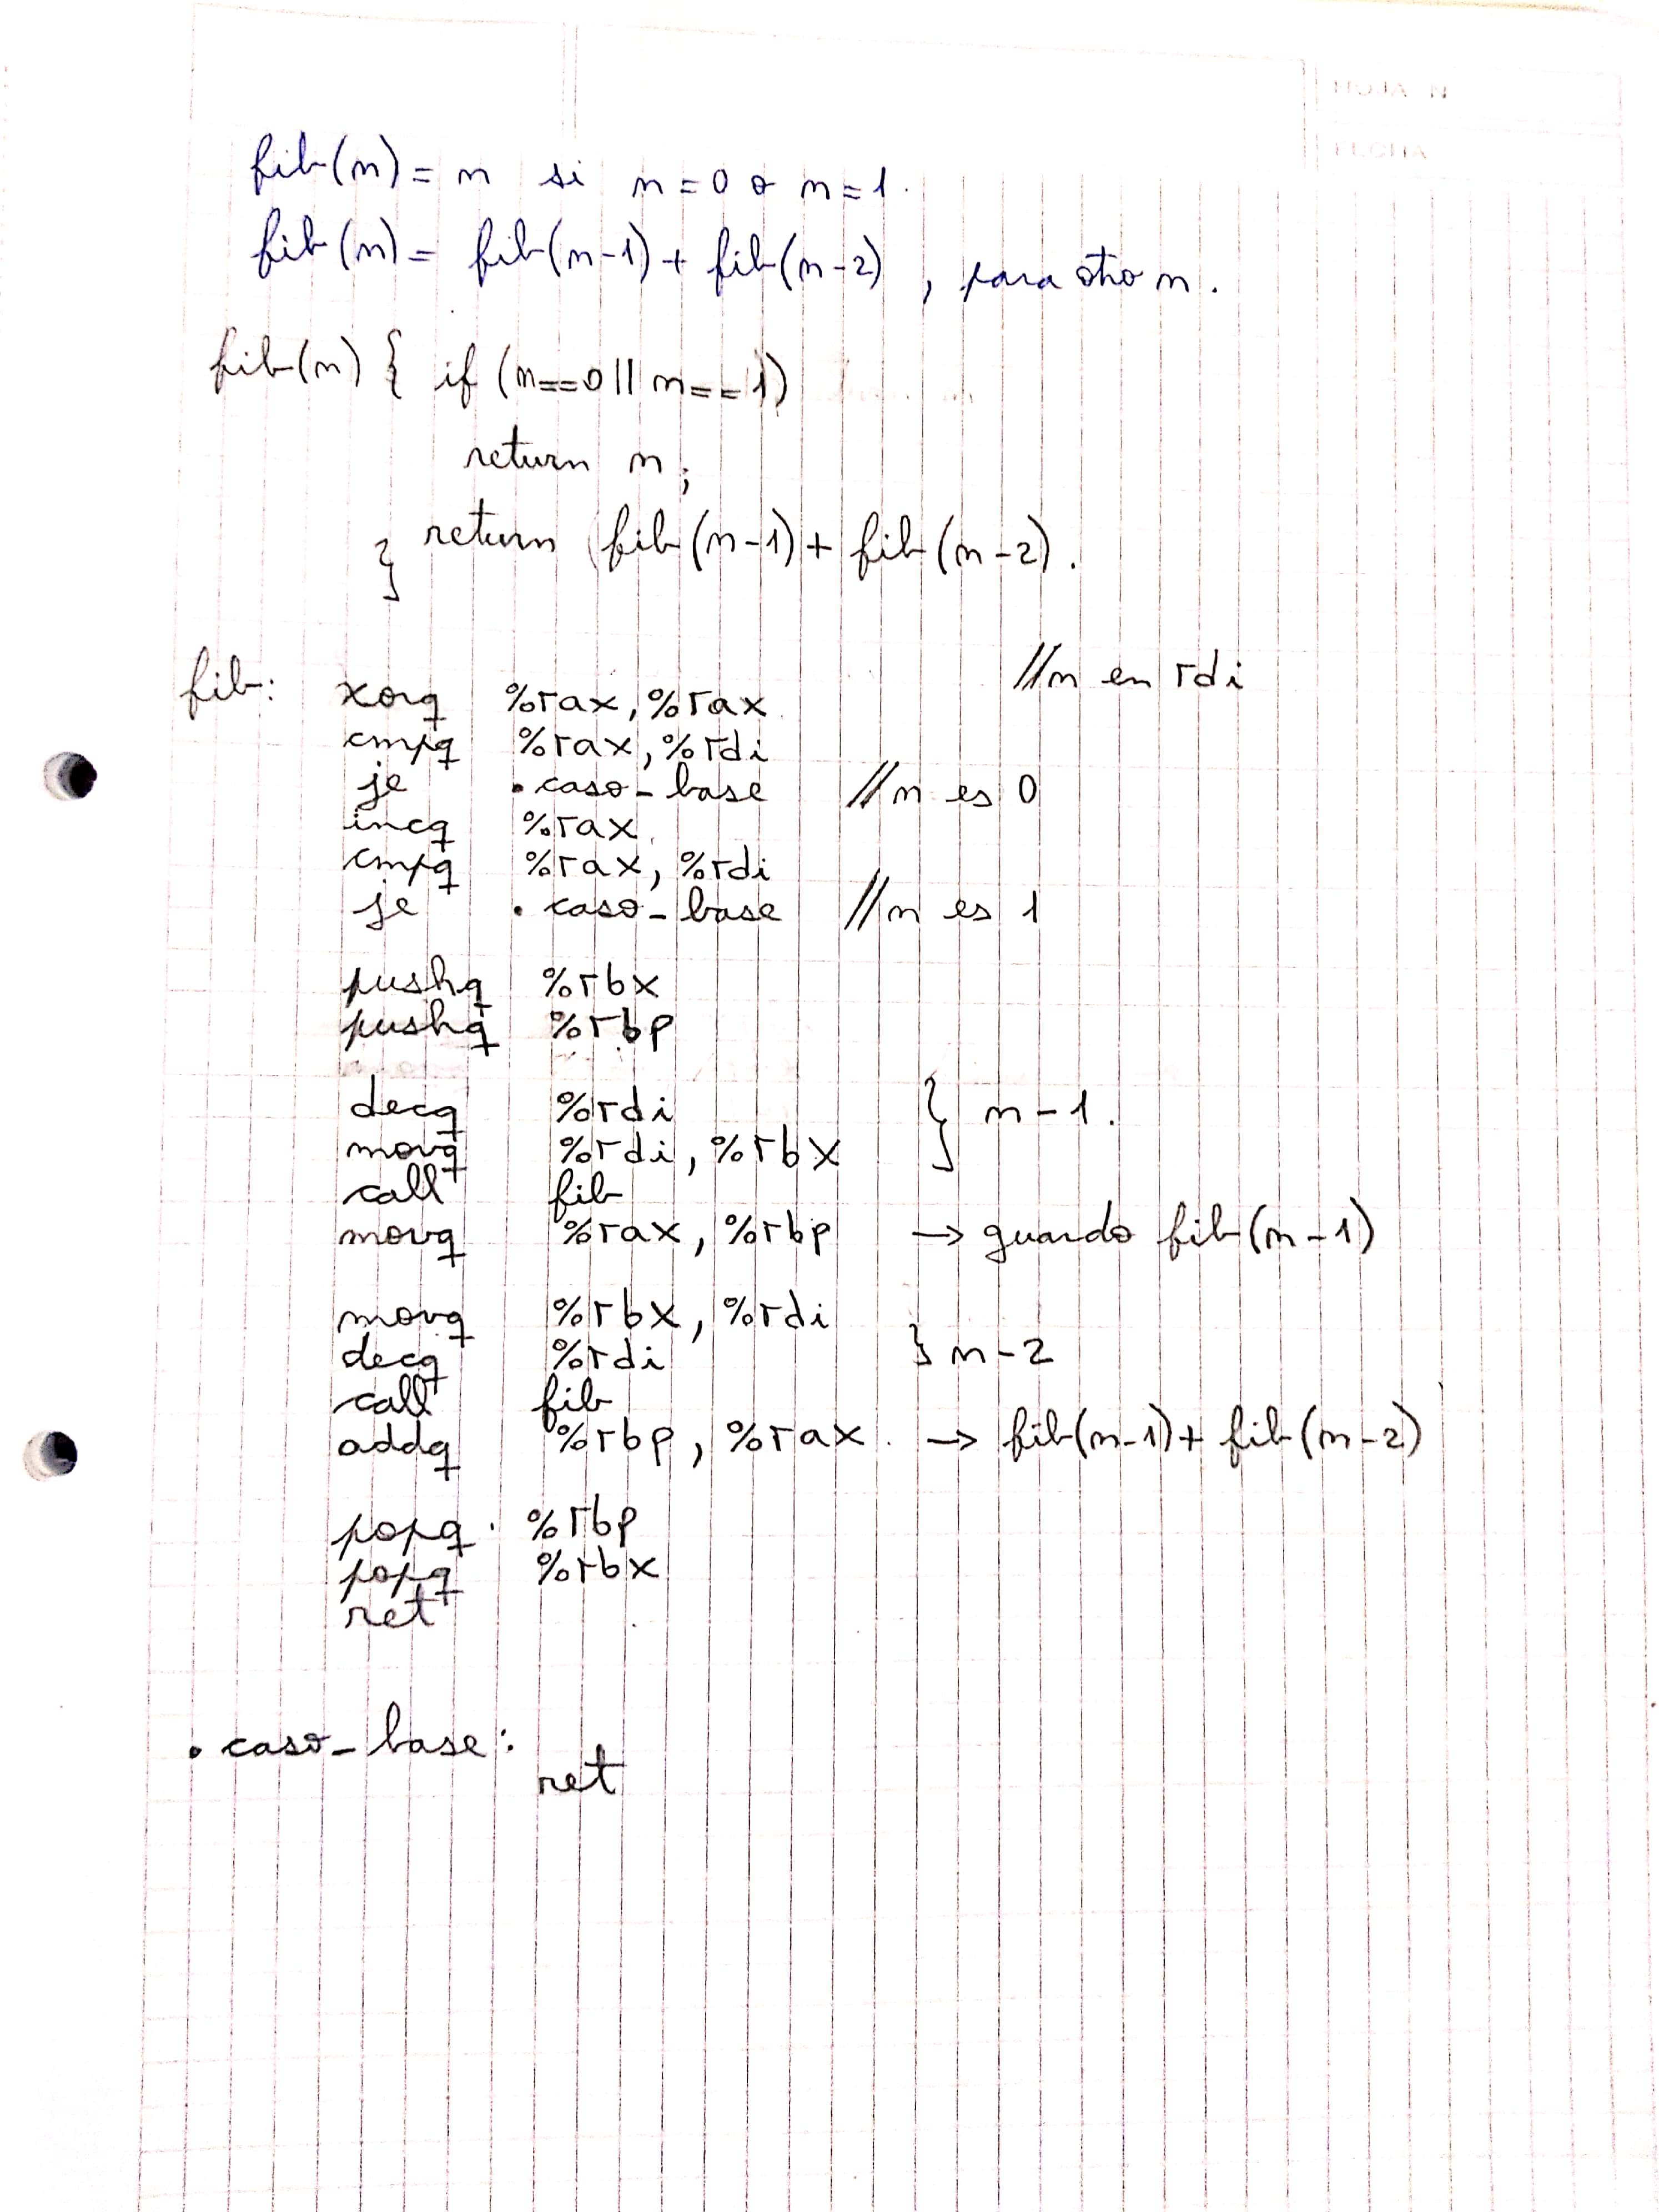 HOJA N
FECHA
fib(n) = n si n = 0 o n = 1.
fib(n) = fib(n-1) + fib(n-2) , para otro n.
fib(n) { if (n==0 || n==1)
return n;
} return fib(n-1) + fib(n-2).
fib: xorq %rax, %rax //n en rdi
cmpq %rax, %rdi
je .caso_base //n es 0
incq %rax
cmpq %rax, %rdi
je .caso_base //n es 1
pushq %rbx
pushq %rbp
decq %rdi } n-1.
movq %rdi, %rbx
call fib
movq %rax, %rbp → guardo fib(n-1)
movq %rbx, %rdi
decq %rdi } n-2
call fib
addq %rbp, %rax. → fib(n-1) + fib(n-2)
popq %rbp
popq %rbx
ret
.caso_base:
ret